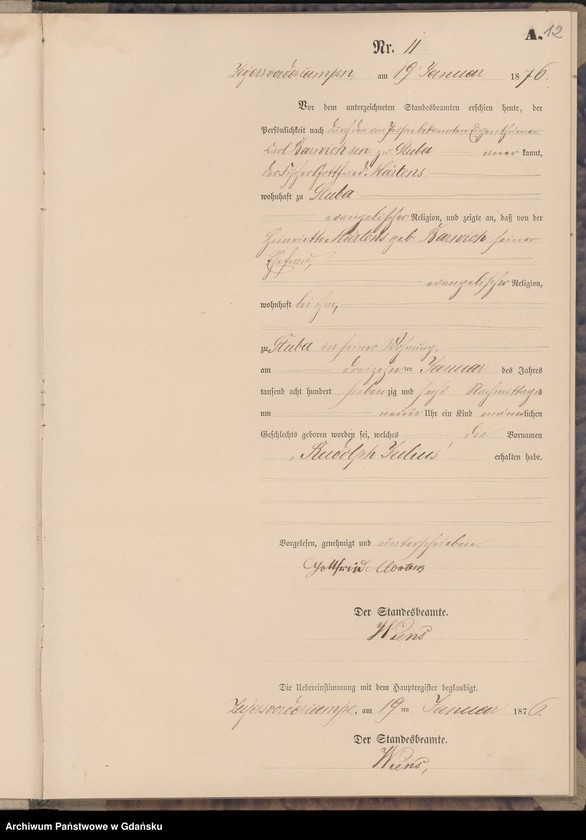 A. 12
Nr. 11
Zeyersvordercampen, am 19 Januar 1876.
Vor dem unterzeichneten Standesbeamten erschien heute, der
Persönlichkeit nach durch den von Person bekannten Eigenthümer
Carl Barwich zu Stuba anerkannt,
der Fischer Gottfried Märtens
wohnhaft zu Stuba
evangelischer Religion, und zeigte an, daß von der
Henriette Märtens geb. Barwich seiner
Ehefrau,
evangelischer Religion,
wohnhaft bei ihm,
zu Stuba in seiner Wohnung,
am dreizehnten Januar des Jahres
tausend acht hundert siebenzig und sechs Nachmittags
um neun Uhr ein Kind männlichen
Geschlechts geboren worden sei, welches die Vornamen
„Rudolph Julius“ erhalten habe.
Vorgelesen, genehmigt und unterschrieben.
Gottfried
Der Standesbeamte.
Wiens
Die Uebereinstimmung mit dem Hauptregister beglaubigt.
Zeyersvordercampe, am 19 ten Januar 1876.
Der Standesbeamte.
Wiens,
Archiwum Państwowe w Gdańsku